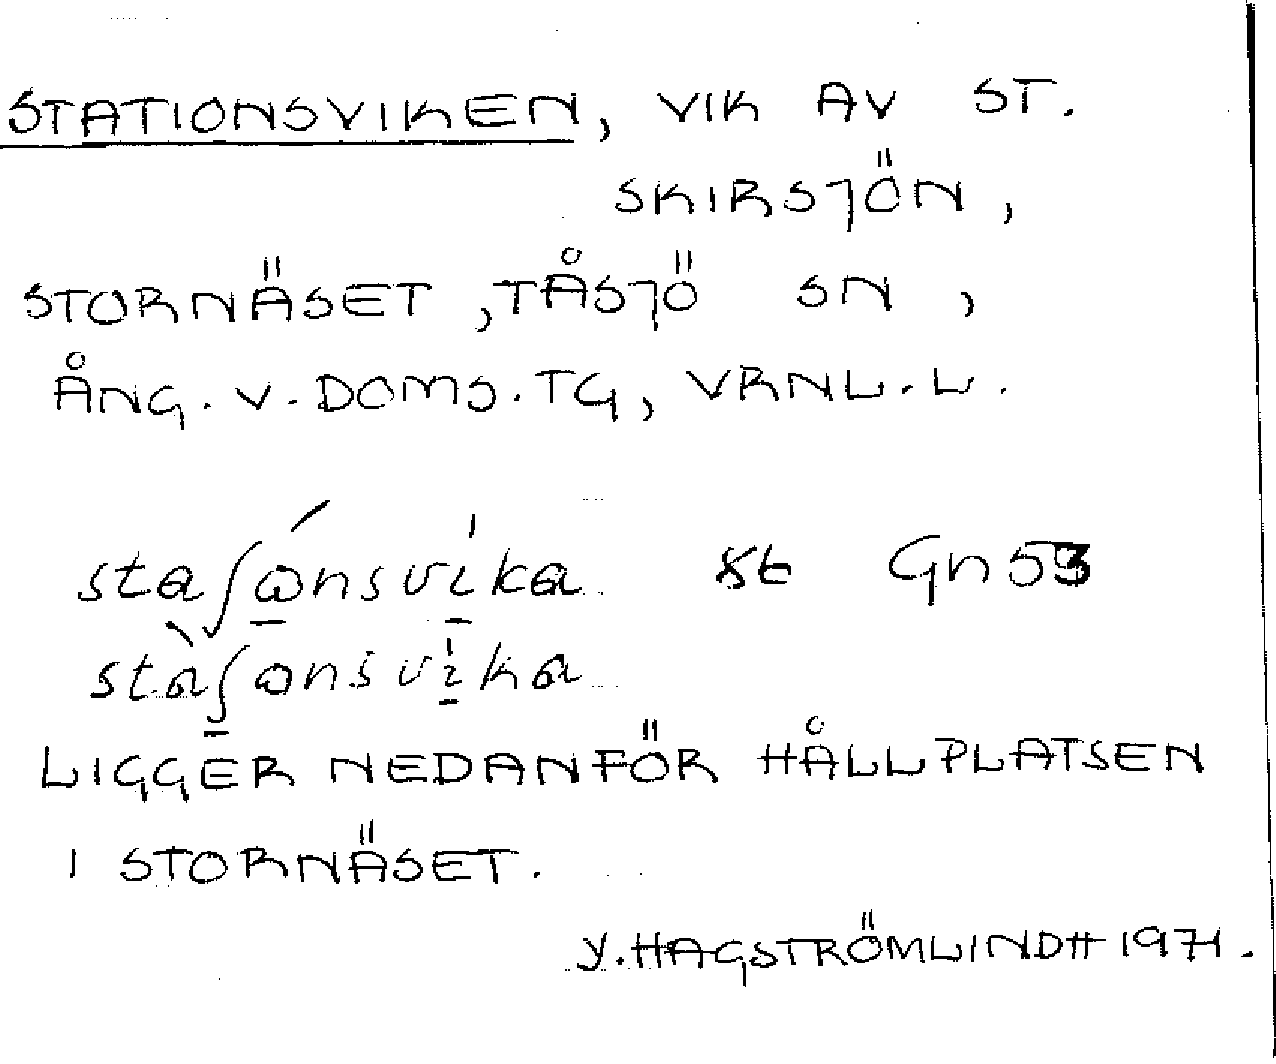 STATIONSVIKEN, VIK AV ST.
SKIRSJÖN,
STORNÄSET, TÅSJÖ SN,
ÅNG. V. DOMS. TG, VRNL. L.
staʃɷ́nsvíka st Gn53
stàʃɷnsvika
LIGGER NEDANFÖR HÅLLPLATSEN
I STORNÄSET.
Y. HAGSTRÖMLINDH 1971.